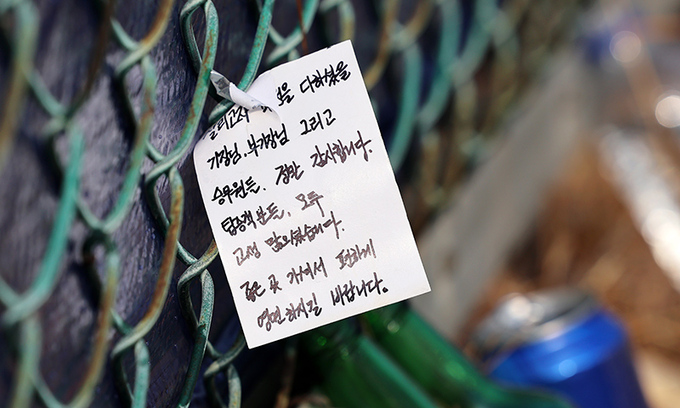 을 다하셨을
기장님, 부기장님 그리고
승무원들, 정말 감사합니다.
탑승객분들, 모두
고생 많으셨습니다.
좋은 곳 가셔서 편하게
영면하시길 바랍니다.